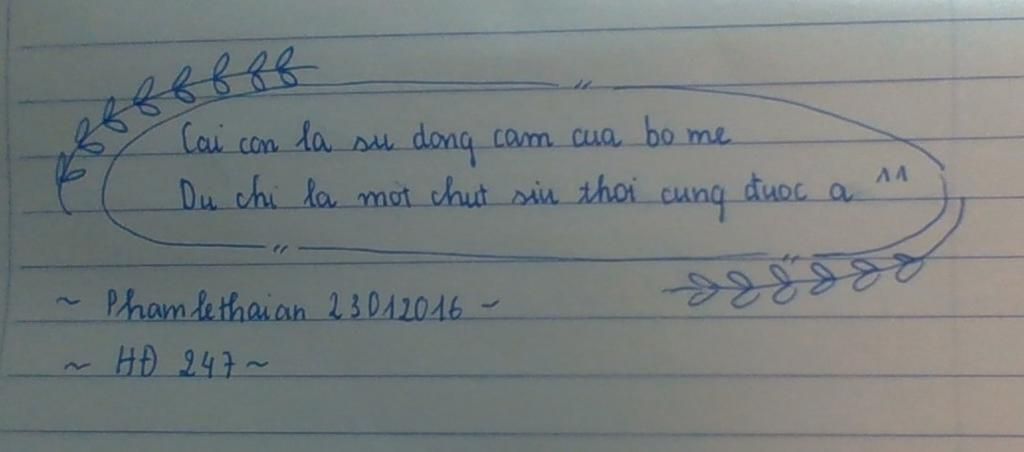 Cai con la su dong cam cua bo me
Du chi la mot chut siu thoi cung đuoc a ^^
~ Phamlethaian 23012016 ~
~ HĐ 247 ~